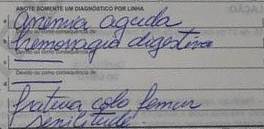 ANOTE SOMENTE UM DIAGNÓSTICO POR LINHA
anemia aguda
Devido ou como consequência de
hemoragia digestiva
Devido ou como consequência de
Devido ou como consequência de
fratura colo femur
senilitude